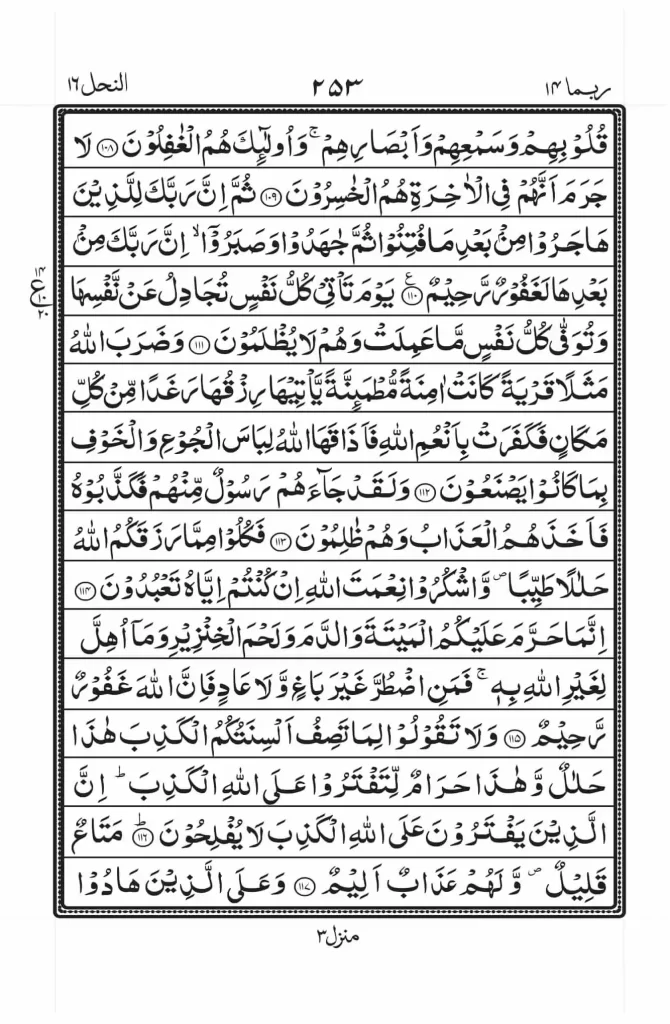 ربما ١٤
٢٥٣
النحل ١٦
قُلُوْبِهِمْ وَسَمْعِهِمْ وَاَبْصَارِهِمْ ۚ وَاُولٰٓئِكَ هُمُ الْغٰفِلُوْنَ ﴿١٠٨﴾ لَا
جَرَمَ اَنَّهُمْ فِى الْاٰخِرَةِ هُمُ الْخٰسِرُوْنَ ﴿١٠٩﴾ ثُمَّ اِنَّ رَبَّكَ لِلَّذِيْنَ
هَاجَرُوْا مِنْۢ بَعْدِ مَا فُتِنُوْا ثُمَّ جٰهَدُوْا وَصَبَرُوْٓا ۙ اِنَّ رَبَّكَ مِنْۢ
بَعْدِهَا لَغَفُوْرٌ رَّحِيْمٌ ﴿١١٠﴾ ع يَوْمَ تَاْتِىْ كُلُّ نَفْسٍ تُجَادِلُ عَنْ نَّفْسِهَا
١٤
ع
١٠
٢٠
وَتُوَفّٰى كُلُّ نَفْسٍ مَّا عَمِلَتْ وَهُمْ لَا يُظْلَمُوْنَ ﴿١١١﴾ وَضَرَبَ اللّٰهُ
مَثَلًا قَرْيَةً كَانَتْ اٰمِنَةً مُّطْمَئِنَّةً يَّاْتِيْهَا رِزْقُهَا رَغَدًا مِّنْ كُلِّ
مَكَانٍ فَكَفَرَتْ بِاَنْعُمِ اللّٰهِ فَاَذَاقَهَا اللّٰهُ لِبَاسَ الْجُوْعِ وَالْخَوْفِ
بِمَا كَانُوْا يَصْنَعُوْنَ ﴿١١٢﴾ وَلَقَدْ جَآءَهُمْ رَسُوْلٌ مِّنْهُمْ فَكَذَّبُوْهُ
فَاَخَذَهُمُ الْعَذَابُ وَهُمْ ظٰلِمُوْنَ ﴿١١٣﴾ فَكُلُوْا مِمَّا رَزَقَكُمُ اللّٰهُ
حَلٰلًا طَيِّبًا ۖ وَّاشْكُرُوْا نِعْمَتَ اللّٰهِ اِنْ كُنْتُمْ اِيَّاهُ تَعْبُدُوْنَ ﴿١١٤﴾
اِنَّمَا حَرَّمَ عَلَيْكُمُ الْمَيْتَةَ وَالدَّمَ وَلَحْمَ الْخِنْزِيْرِ وَمَآ اُهِلَّ
لِغَيْرِ اللّٰهِ بِهٖ ۚ فَمَنِ اضْطُرَّ غَيْرَ بَاغٍ وَّلَا عَادٍ فَاِنَّ اللّٰهَ غَفُوْرٌ
رَّحِيْمٌ ﴿١١٥﴾ وَلَا تَقُوْلُوْا لِمَا تَصِفُ اَلْسِنَتُكُمُ الْكَذِبَ هٰذَا
حَلٰلٌ وَّهٰذَا حَرَامٌ لِّتَفْتَرُوْا عَلَى اللّٰهِ الْكَذِبَ ؕ اِنَّ
الَّذِيْنَ يَفْتَرُوْنَ عَلَى اللّٰهِ الْكَذِبَ لَا يُفْلِحُوْنَ ؕ﴿١١٦﴾ مَتَاعٌ
قَلِيْلٌ ۖ وَّلَهُمْ عَذَابٌ اَلِيْمٌ ﴿١١٧﴾ وَعَلَى الَّذِيْنَ هَادُوْا
منزل ٣